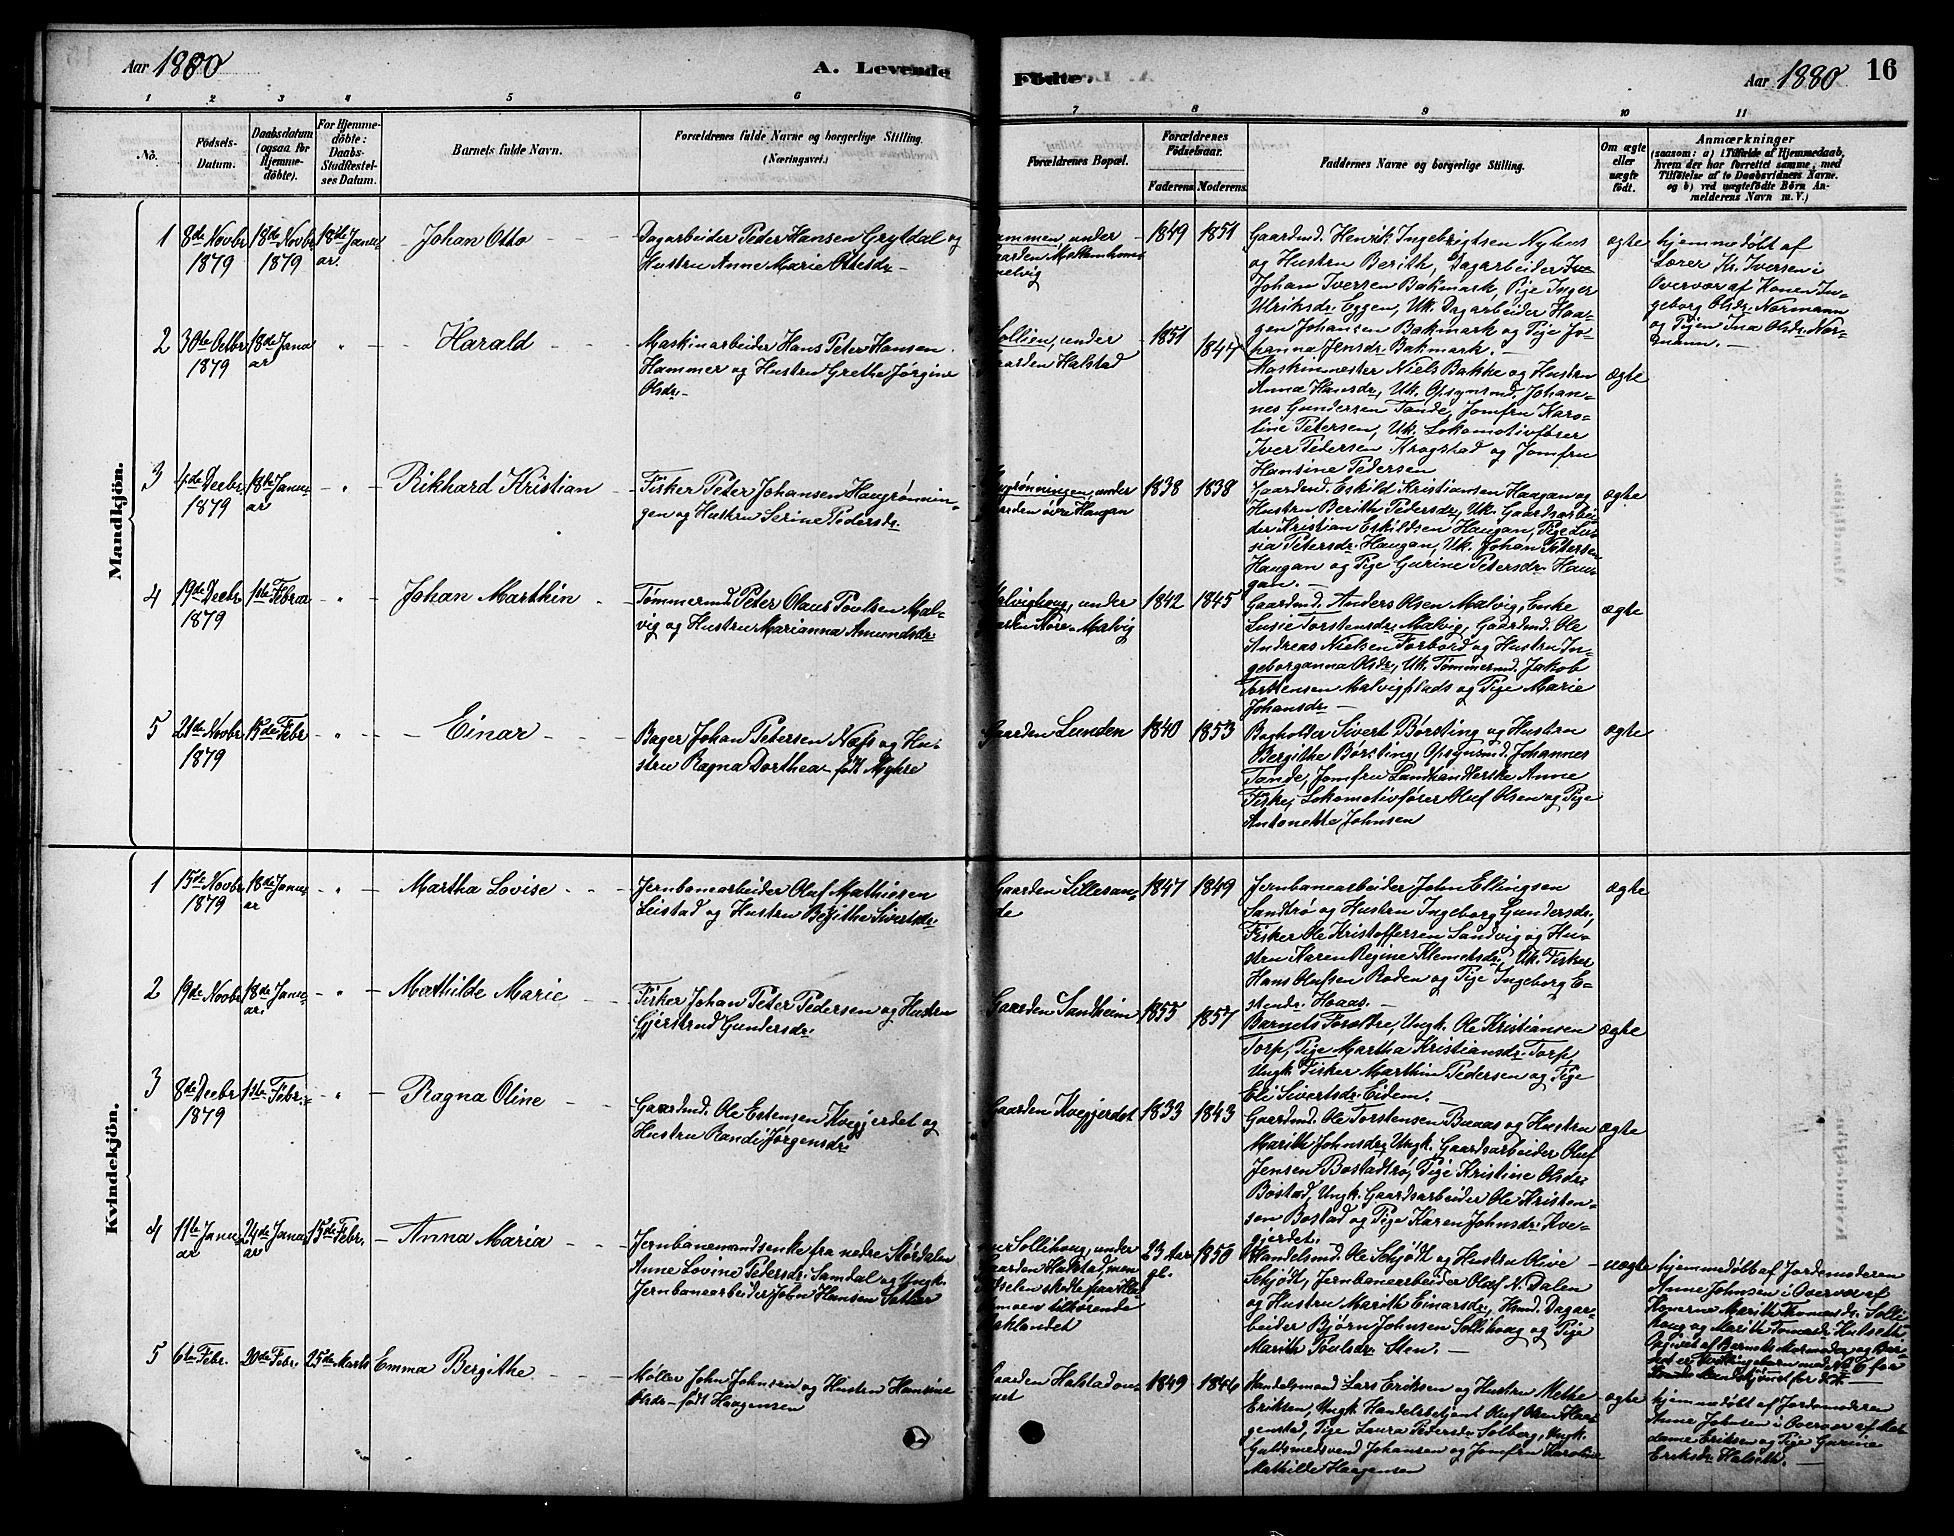 Aar 1880
A. Levende
Födte.
Aar 1880
16
1 2 3 4 5 6 7 8 9 10 11
No.
Födsels-
Datum.
Daabsdatum
(ogsaa for
Hjemme-
döbte).
For Hjemme-
döbte:
Daabs-
Stadfæstel-
ses Datum.
Barnets fulde Navn.
Forældrenes fulde Navne og borgerlige Stilling.
(Næringsvei.)
Forældrenes Bopæl.
Forældrenes
Födselsaar.
Faderens. Moderens.
Faddernes Navne og borgerlige Stilling.
Om ægte
eller
uægte
födt.
Anmærkninger
(saasom: a) i Tilfælde af Hjemmedaab,
hvem der har forrettet samme, med
Tilföielse af to Daabsvidners Navne.
og b) ved uægtefödte Börn An-
melderens Navn m. V.)
Mandkjön.
1
8de Novbr
1879
18de Novbr
1879
18de Janu
ar.
Johan Otto
Dagarbeider Peder Hansen Grytdal og
Hustru Anne Marie Ottesdr.
under
1849
1851
Gaardmd. Henrik Ingebrigtsen Nyhus
og Hustru Berith, Dagarbeider
Johan Iversen Bakmark, Pige Inger
Ulriksdr. Eggen, Uk. Dagarbeider Haa-
gen Johansen Bakmark og Pige Jo-
hanna Jensdr. Bakmark.
ægte
hjemmedöbt af
Lærer Kr. Iversen i
Overvær af Konen In-
geborg Olsdr. Normann
og Pigen Ina Olsdr. Nor-
mann.
2
30te Octbr
1879
18de Janu
ar
Harald
Maskinarbeider Hans Peter Hansen
Hammer og Hustru Grethe Jørgine
Olsdr.
Sollien, under
Gaarden Halstad
1851
1847
Maskinmester Niels Bakke og Hustru
Anna Hansdr., Uk. Opsynsmd. Johan-
nes Gundersen Tande, Jomfru Karo-
line Petersen, Uk. Lokomotivfører
Iver Pedersen Krogstad og Jomfru
Hansine Pedersen
ægte
3
4de Decbr
1879
18de Janu
ar
Rikhard Kristian
Fisker Peter Johansen Haugrønnin-
gen og Hustru Serine Pedersdr.
under
Gaarden øvre Haugan
1838
1838
Gaardmd. Eskild Kristiansen Haugan og
Hustru Berith Petersdr., Uk. Gaardsarbei-
der Kristian Eskildsen Haugan, Pige Lu-
sia Petersdr. Haugan, Uk. Johan Petersen
Haugan og Pige Gurine Petersdr. Hau-
gan.
ægte
4
19de Decbr
1879
1ste Febru
Johan Marthin
Tømmermd. Peter Olaus Poulsen Mal-
vig og Hustru Marianna Amundsdr.
Malvighaug, under
Nore-Malvig
1842
1845
Gaardmd. Anders Olsen Malvig, Enke
Lusie Torstensdr. Malvig, Gaardmd. Ole
Andreas Nielsen Forbord og Hustru In-
geborganna Olsdr., Uk. Tømmermd. Jakob
Torstensen Malvigplads og Pige Marie
Johansdr.
ægte
5
21de Novbr
1879
15de Febr
Einar
Bager Johan Petersen Næss og Hu-
stru Ragna Dorthea født Myhre
Gaarden Lunden
1840
1853
Bogholder Sivert Børsting og Hustru
Bergithe Børsting, Opsynsmd. Johannes
Tande, Jomfru Anne
Fiske, Lokomotivfører Oluf Olsen og Pige
Antonette Johnsen
ægte
Kvindekjön.
1
15de Novbr
1879
18de Janu
ar
Martha Lovise
Jernbanearbeider Oluf Mathiesen
Leistad og Hustru Berithe Sivertsdr.
Gaarden Lillesan-
de
1847
1849
Jernbanearbeider John Ellingsen
Sandtrø og Hustru Ingeborg Gundersdr.,
Fisker Ole Kristoffersen Sandvig og Hu-
stru Karen Regine Klemetsdr., Uk. Fisker
Hans Olufsen Roden og Pige Ingeborg E-
stensdr. Hoaas.
ægte
2
19de Novbr
18de Janu
ar.
Mathilde Marie
Fisker Johan Peter Pedersen og Hustru
Gjertrud Gundersdr.
Gaarden Sandheim
1855
1857
Barnets Forældre, Ungk. Ole Kristiansen
Torp, Pige Martha Kristiansdr. Torp,
Ungk. Fisker Marthin Pedersen og Pige
Eli Sivertsdr. Eidem.
ægte
3
8de Decbr
1879
1ste Febr.
Ragna Oline
Gaardmd. Ole Estensen Kvegjerdet og
Hustru Randi Jørgensdr.
Gaarden Kvegjerdet
1833
1843
Gaardmd. Ole Torstensen Buaas og Hustru
Marith Johnsdr., Ungk. Gaardsarbeider Oluf
Jensen Bostadtrø, Pige Kristine Olsdr.
Bostad, Ungk. Gaardsarbeider Ole Kristen-
sen Bostad og Pige Karen Johnsdr. Kve-
gjerdet.
ægte
4
11te Janu
ar
24de Janu
ar
15de Febr.
Anna Maria
Jernbanemandsenke fra nedre Størdalen
Anne Lovine Pedersdr. Samdal og Ungk.
Jernbanearbeider John Hansen Sather
Sollihoug, under
Gaarden Halstad, men
tilhørende
Baklandet
23 Aar
gl.
1850
Handelsmd. Ole Schjødt og Hustru Olive
Schjødt, Jernbanearbeider Oluf N. Dalen
og Hustru Marith Einarsdr., Hsmd. Dagar-
beider Bjørn Johnsen Sollihoug og Pige
Marith Poulsdr. Sten.
uægte
hjemmedöbt af Jordemoderen
Anne Johnsen i Overvær af
Konerne Marith Thomasdr. Solli-
houg og Marith Tomasdr. Hulseth.
Opgivet af Barnets Mormoder og Bar-
net er
5
6te Febr.
20de Febr.
25de Marts
Emma Bergithe
Møller John Johnsen og Hustru Hansine
Olsdr. født Haagensen
Gaarden Halstad
1849
1844
Handelsmand Lars Eriksen og Hustru Methe
Eriksen, Ungk. Handelsbetjent Oluf Olsen Haa-
genstad, Pige Laura Pedersdr. Solberg, Ungk.
Guldsmedsvend Johansen og Jomfru Karoline
Mathilde Haagensen
ægte
hjemmedöbt af Jordemoderen
Anne Johnsen i Overvær af Ma-
dame Eriksen og Pige Gurine
Eriksdr. Halseth.